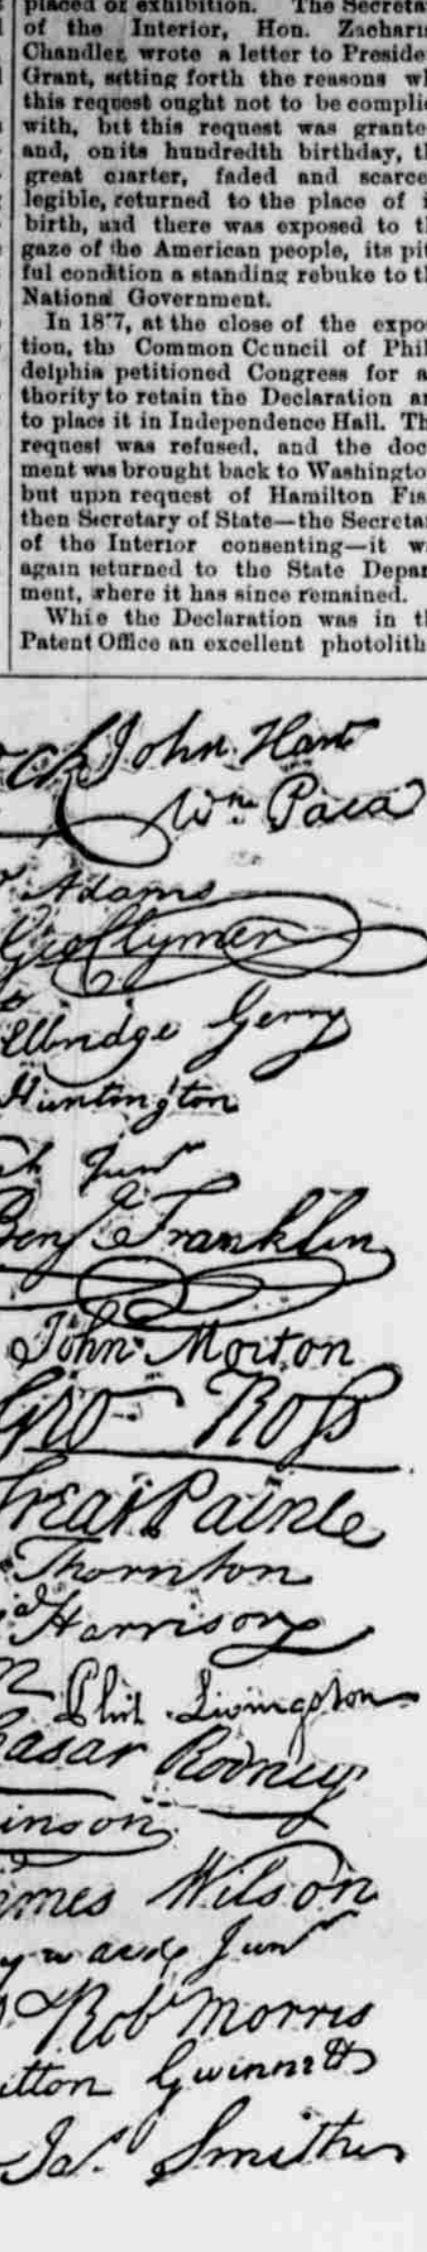 placed or exhibition. The Secreta
of the Interior, Hon. Zachari
Chandler, wrote a letter to Preside
Grant, setting forth the reasons w
this request ought not to be complie
with, but this request was grante
and, on its hundredth birthday, t
great charter, faded and scarce
legible, returned to the place of i
birth, and there was exposed to t
gaze of the American people, its pit
ful condition a standing rebuke to t
National Government.
In 18'7, at the close of the expo
tion, the Common Council of Phil
delphia petitioned Congress for a
thority to retain the Declaration a
to place it in Independence Hall. Th
request was refused, and the doc
ment was brought back to Washingto
but upon request of Hamilton Fis
then Secretary of State—the Secreta
of the Interior consenting—it w
again returned to the State Depar
ment, where it has since remained.
While the Declaration was in t
Patent Office an excellent photolith
ck John Hart
Wm Paca
Adams
Geo Clymer
Elbridge Gerry
Huntington
h Junr
Benj Franklin
John Morton
Geo Ross
Treat Paine
Thornton
Harrison
Phil. Livingston
aesar Rodney
inson
ames Wilson
yward Junr
Robt Morris
utton Gwinnett
Jas. Smith